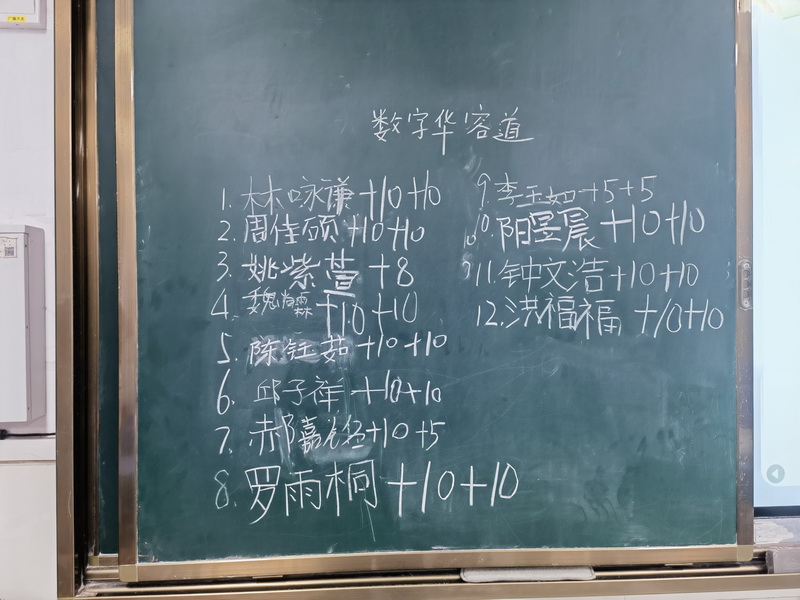 数字华容道
1. 林咏谦 +10 +10
2. 周佳硕 +10 +10
3. 姚紫萱 +8
4. 魏 +10 +10
5. 陈钰茹 +10 +10
6. 邱子祥 +10 +10
7. 郝嘉铭 +10 +5
8. 罗雨桐 +10 +10
9. 李玉如 +5 +5
10. 阳昱晨 +10 +10
11. 钟文浩 +10 +10
12. 洪福福 +10 +10